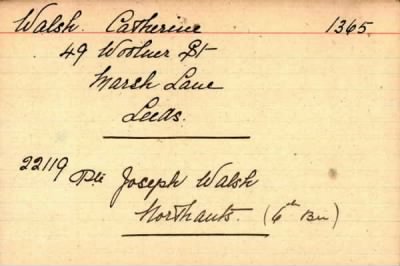 Walsh. Catherine 1365.
49 Woolner St
Marsh Lane
Leeds.
22119 Pte Joseph Walsh
Northants. (6th Bn)